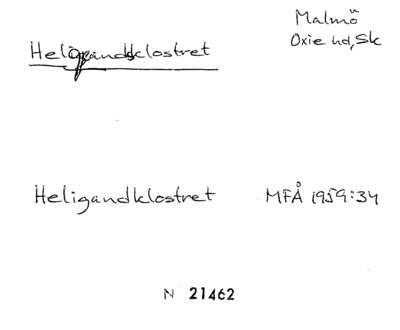 Malmö
Oxie hd, Sk
Heligandsklostret
Heligandklostret MFÅ 1959:34
N 21462